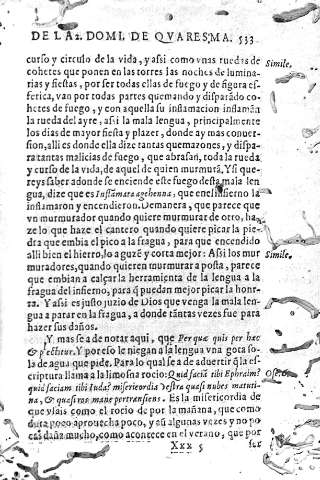 DE LA 2. DOMI. DE QVARESMA. 533
curso y circulo de la vida, y assi como vnas ruedas de
cohetes que ponen en las torres las noches de lumina-
rias y fiestas, por ser todas ellas de fuego y de figura es-
ferica, van por todas partes quemando y disparãdo co-
hetes de fuego, y con aquella su inflamacion inflamã
la rueda del ayre, assi la mala lengua, principalmente
los dias de mayor fiesta y plazer, donde ay mas conuer-
sion, alli es donde ella dize tantas quemazones, y dispa-
ra tantas malicias de fuego, que abrasan, toda la rueda
y curso de la vida, de aquel de quien murmurã, Y si que-
reys saber adonde se enciende este fuego desta mala len
gua, dize que es Inflãmata a gehenna, que en el infierno la
inflamaron y encendieron. De manera, que parece que
vn murmurador quando quiere murmurar de otro, ha-
ze lo que haze el cantero quando quiere picar la pie-
dra que embia el pico a la fragua, para que encendido
alli bien el hierro, lo aguzẽ y corta mejor: Assi los mur
muradores, quando quieren murmurar a posta, parece
que embian a calçar la herramienta de la lengua a la
fragua del infierno, para q̃ puedan mejor picar la honr-
ra. Y assi es justo juzio de Dios que venga la mala len-
gua a parar en la fragua, a donde tãntas vezes fue para
hazer sus daños.
Y mas se a de notar aqui, que Perquæ quis per hæc
& plectitur. Y por eso le niegan a la lengua vna gota so-
la de agua que pide. Para lo qual se a de aduertir q̃ la es-
criptura llama a la limosna rocio: Quid faciã tibi Ephraim?
quid faciam tibi Iuda? misericordia vestra quasi nubes matuti-
na, & quasi ros mane pertransiens. Es la misericordia de
que vsais como el rocio de por la mañana, que como
dura poco aprouecha poco, y aũ algunas vezes y no po
cas daña mucho, como acontece en el verano, que por
Xxx 5
ser
Simile.
Simile,
Ose. 6.